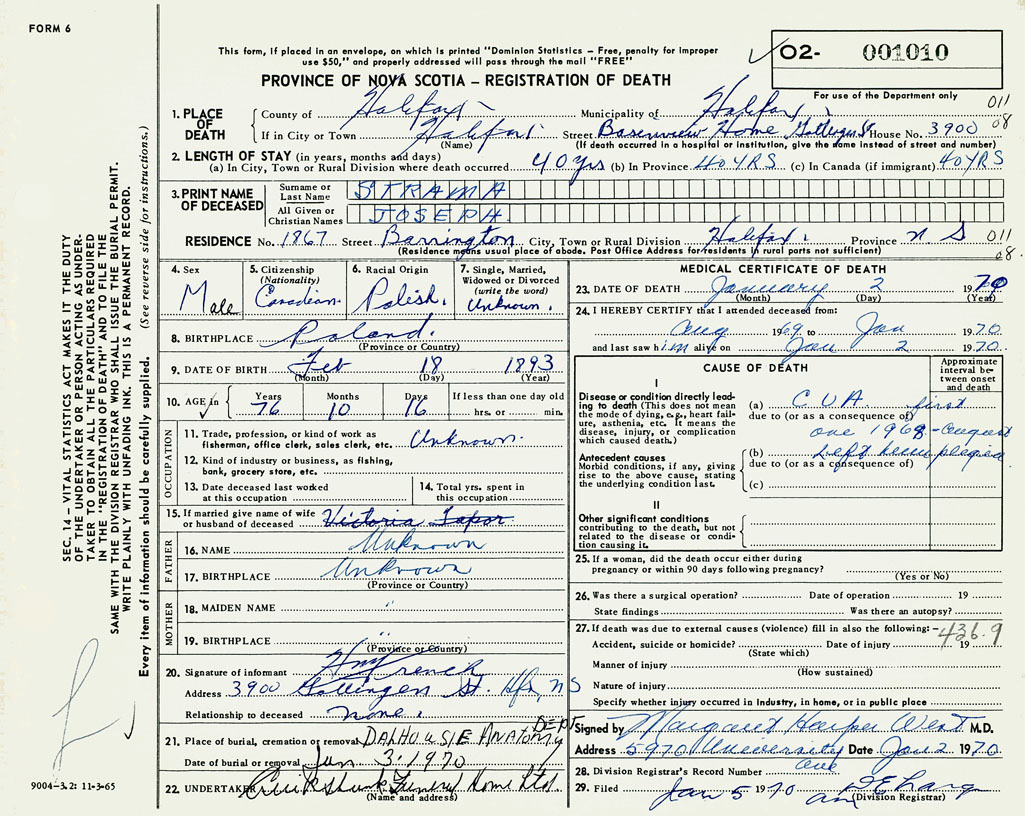 FORM 6
This form, if placed in an envelope, on which is printed "Dominion Statistics – Free, penalty for improper
use $50," and properly addressed will pass through the mail "FREE"
O2- 001010
PROVINCE OF NOVA SCOTIA – REGISTRATION OF DEATH
For use of the Department only
011
08
1. PLACE OF DEATH
County of Halifax Municipality of Halifax
If in City or Town Halifax Street Basinview Home Gottingen St House No. 3900
(Name) (If death occurred in a hospital or institution, give the name instead of street and number)
2. LENGTH OF STAY (in years, months and days)
(a) In City, Town or Rural Division where death occurred 40 yrs (b) In Province 40 YRS (c) In Canada (if immigrant) 40 YRS
3. PRINT NAME OF DECEASED
Surname or Last Name STRAMA
All Given or Christian Names JOSEPH
RESIDENCE No. 1867 Street Barrington City, Town or Rural Division Halifax Province N S 011
(Residence means usual place of abode. Post Office Address for residents in rural parts not sufficient) 08
4. Sex
Male
5. Citizenship
(Nationality)
Canadian
6. Racial Origin
Polish
7. Single, Married,
Widowed or Divorced
(write the word)
Unknown
8. BIRTHPLACE Poland
(Province or Country)
9. DATE OF BIRTH Feb 18 1893
(Month) (Day) (Year)
10. AGE in Years Months Days If less than one day old
76 10 16 hrs. or min.
OCCUPATION
11. Trade, profession, or kind of work as
fisherman, office clerk, sales clerk, etc. Unknown
12. Kind of industry or business, as fishing,
bank, grocery store, etc.
13. Date deceased last worked
at this occupation
14. Total yrs. spent in
this occupation
15. If married give name of wife
or husband of deceased Victoria Tapor
FATHER
16. NAME Unknown
17. BIRTHPLACE Unknown
(Province or Country)
MOTHER
18. MAIDEN NAME "
19. BIRTHPLACE "
(Province or Country)
20. Signature of informant French
Address 3900 Gottingen St. Hfx, NS
Relationship to deceased none
21. Place of burial, cremation or removal DALHOUSIE ANATOMY DEPT
Date of burial or removal Jan 3. 1970
22. UNDERTAKER Cruikshank Funeral Home Ltd.
(Name and address)
MEDICAL CERTIFICATE OF DEATH
23. DATE OF DEATH January 2 1970
(Month) (Day) (Year)
24. I HEREBY CERTIFY that I attended deceased from:
Aug 1969 to Jan 1970
and last saw him alive on Jan 2 1970
CAUSE OF DEATH
Approximate
interval be-
tween onset
and death
I
Disease or condition directly lead-
ing to death (This does not mean
the mode of dying, e.g., heart fail-
ure, asthenia, etc. It means the
disease, injury, or complication
which caused death.)
(a) C V A first
due to (or as a consequence of)
one 1968 - August
Antecedent causes
Morbid conditions, if any, giving
rise to the above cause, stating
the underlying condition last.
(b) Left hemiplegia
due to (or as a consequence of)
(c)
II
Other significant conditions
contributing to the death, but not
related to the disease or condi-
tion causing it.
25. If a woman, did the death occur either during
pregnancy or within 90 days following pregnancy?
(Yes or No)
26. Was there a surgical operation? Date of operation 19
State findings Was there an autopsy?
27. If death was due to external causes (violence) fill in also the following:– 436.9
Accident, suicide or homicide? Date of injury 19
(State which)
Manner of injury
(How sustained)
Nature of injury
Specify whether injury occurred in Industry, in home, or in public place
Signed by Margaret Harper West M.D.
Address 5970 University Ave Date Jan 2. 1970
28. Division Registrar's Record Number
29. Filed Jan 5 1970
(Division Registrar)
SEC. 14 – VITAL STATISTICS ACT MAKES IT THE DUTY
OF THE UNDERTAKER OR PERSON ACTING AS UNDER-
TAKER TO OBTAIN ALL THE PARTICULARS REQUIRED
IN THE "REGISTRATION OF DEATH" AND TO FILE THE
SAME WITH THE DIVISION REGISTRAR WHO SHALL ISSUE THE BURIAL PERMIT.
WRITE PLAINLY WITH UNFADING INK. THIS IS A PERMANENT RECORD.
Every item of information should be carefully supplied. (See reverse side for instructions.)
9004–3.2: 11-3-65